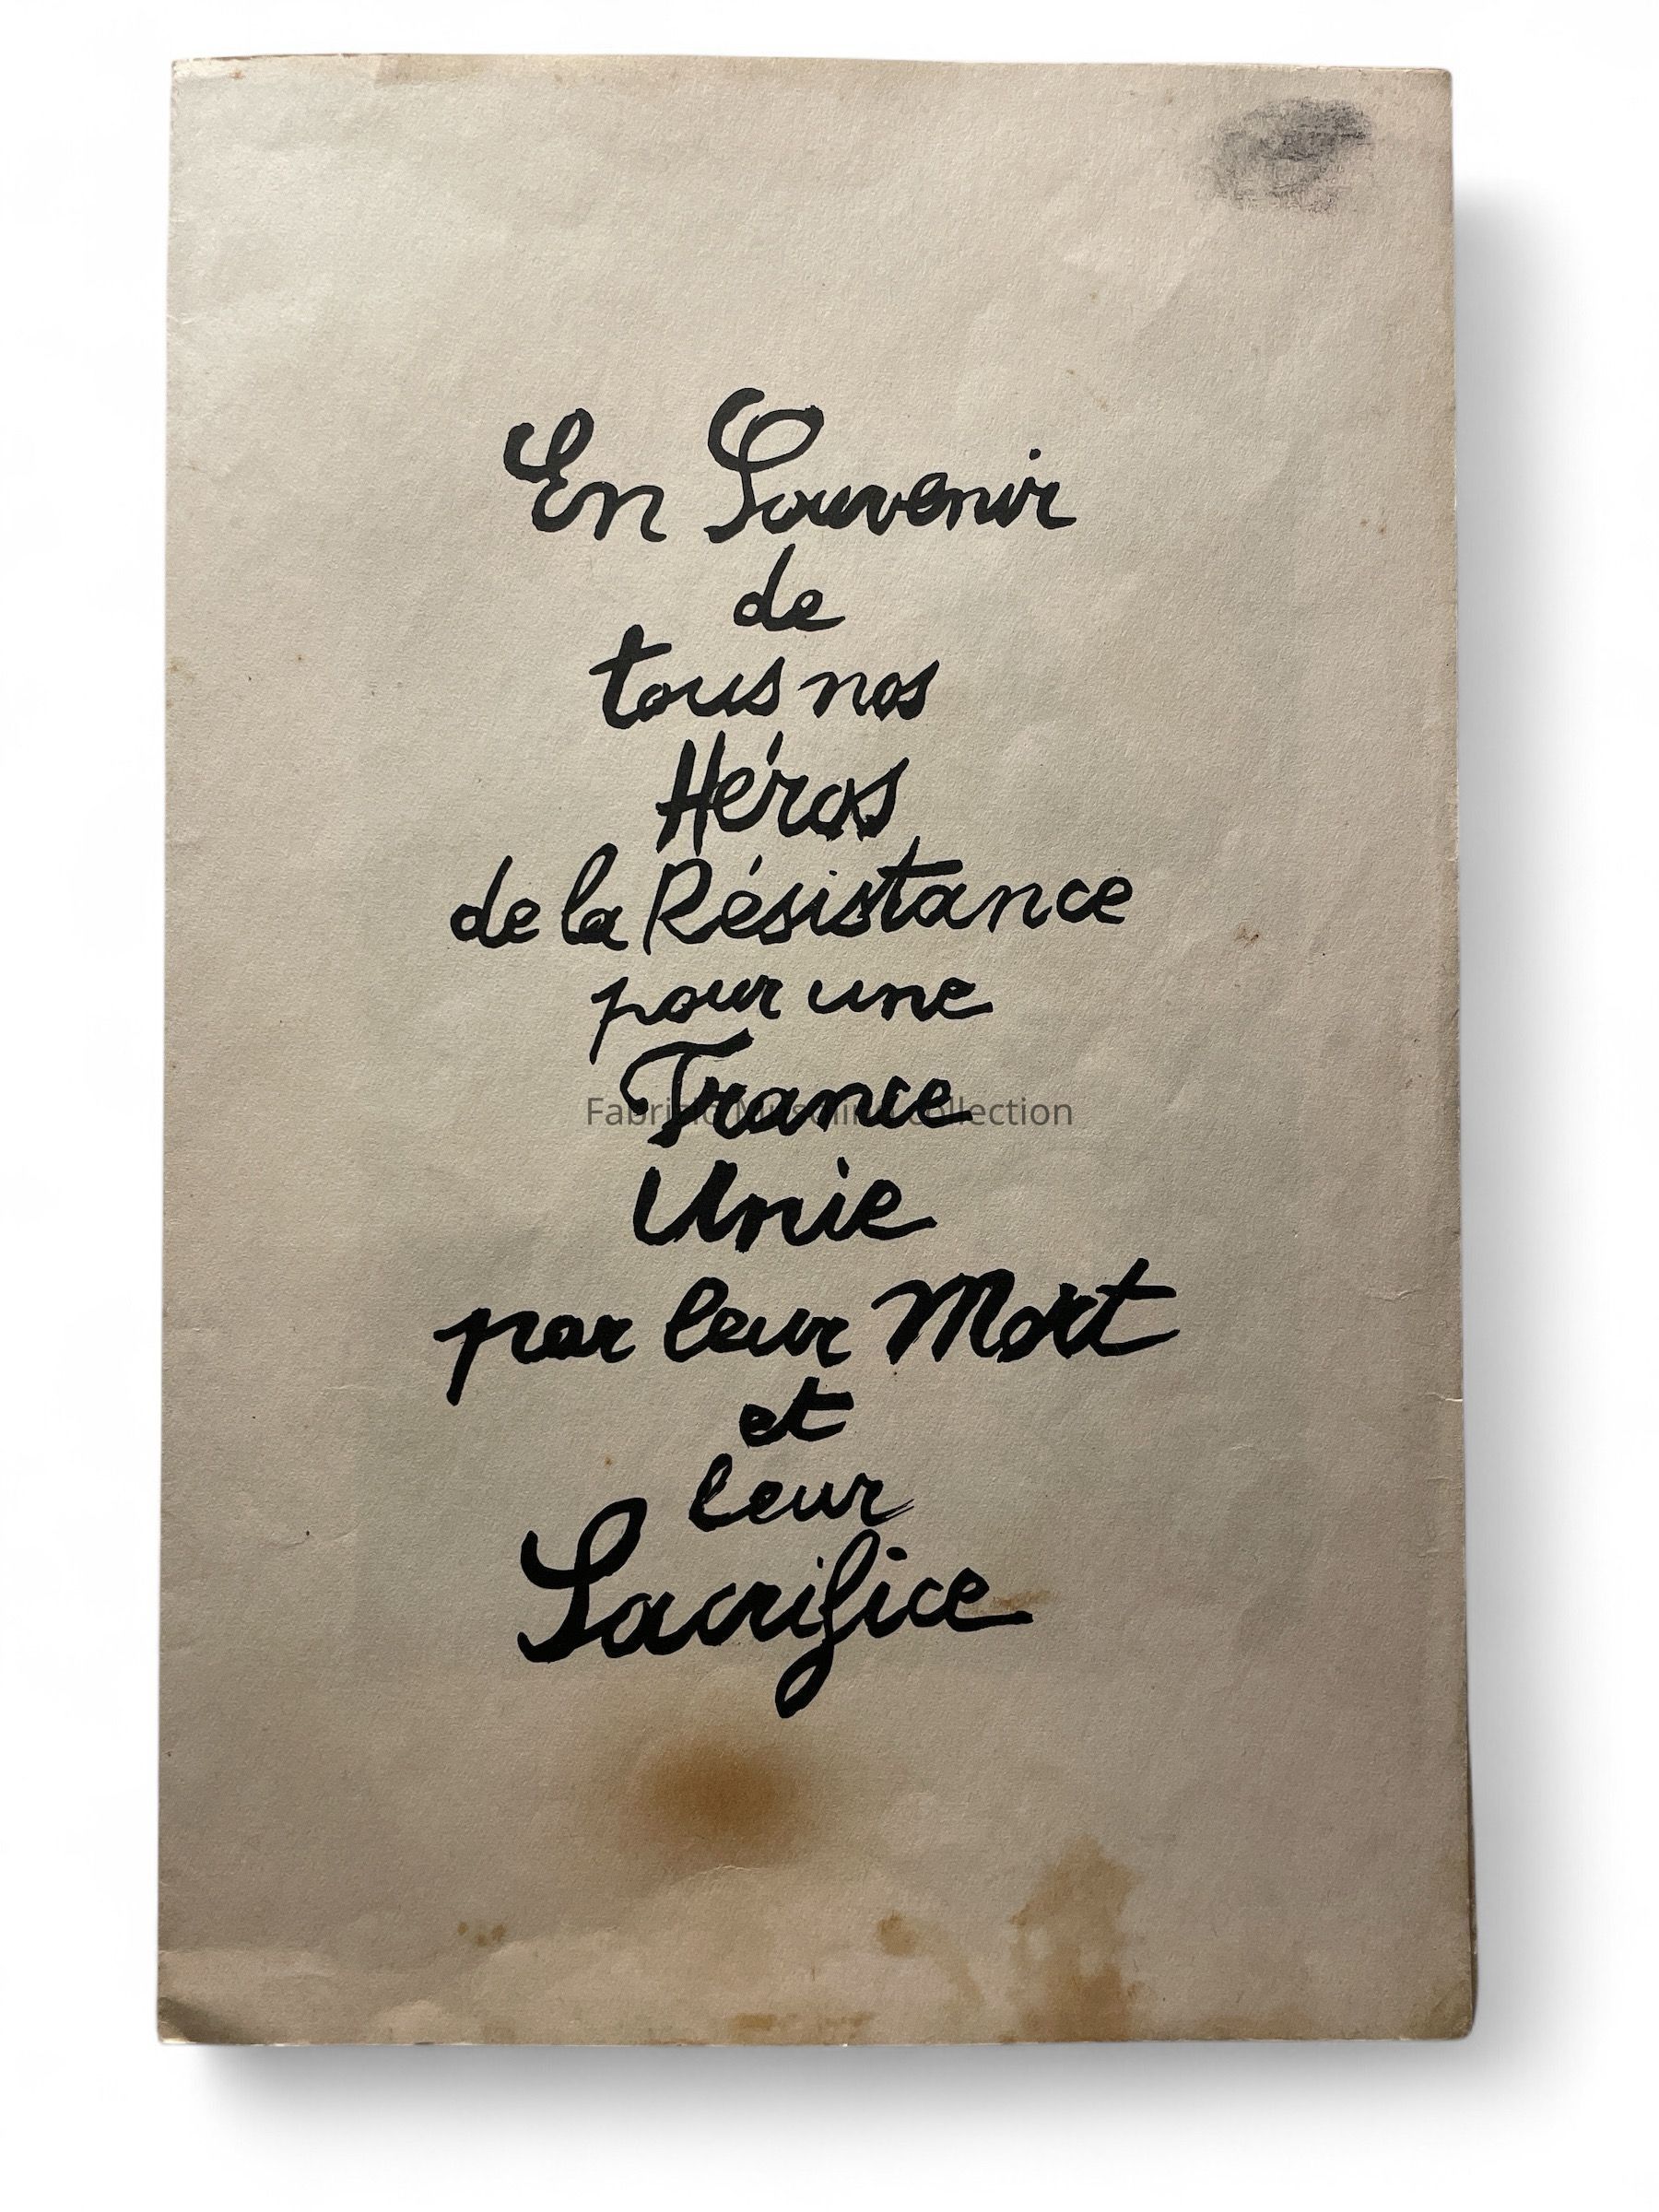 En Souvenir
de
tous nos
Héros
de la Résistance
pour une
France
Fabrizio Musolino Collection
Unie
par leur Mort
et
leur
Sacrifice